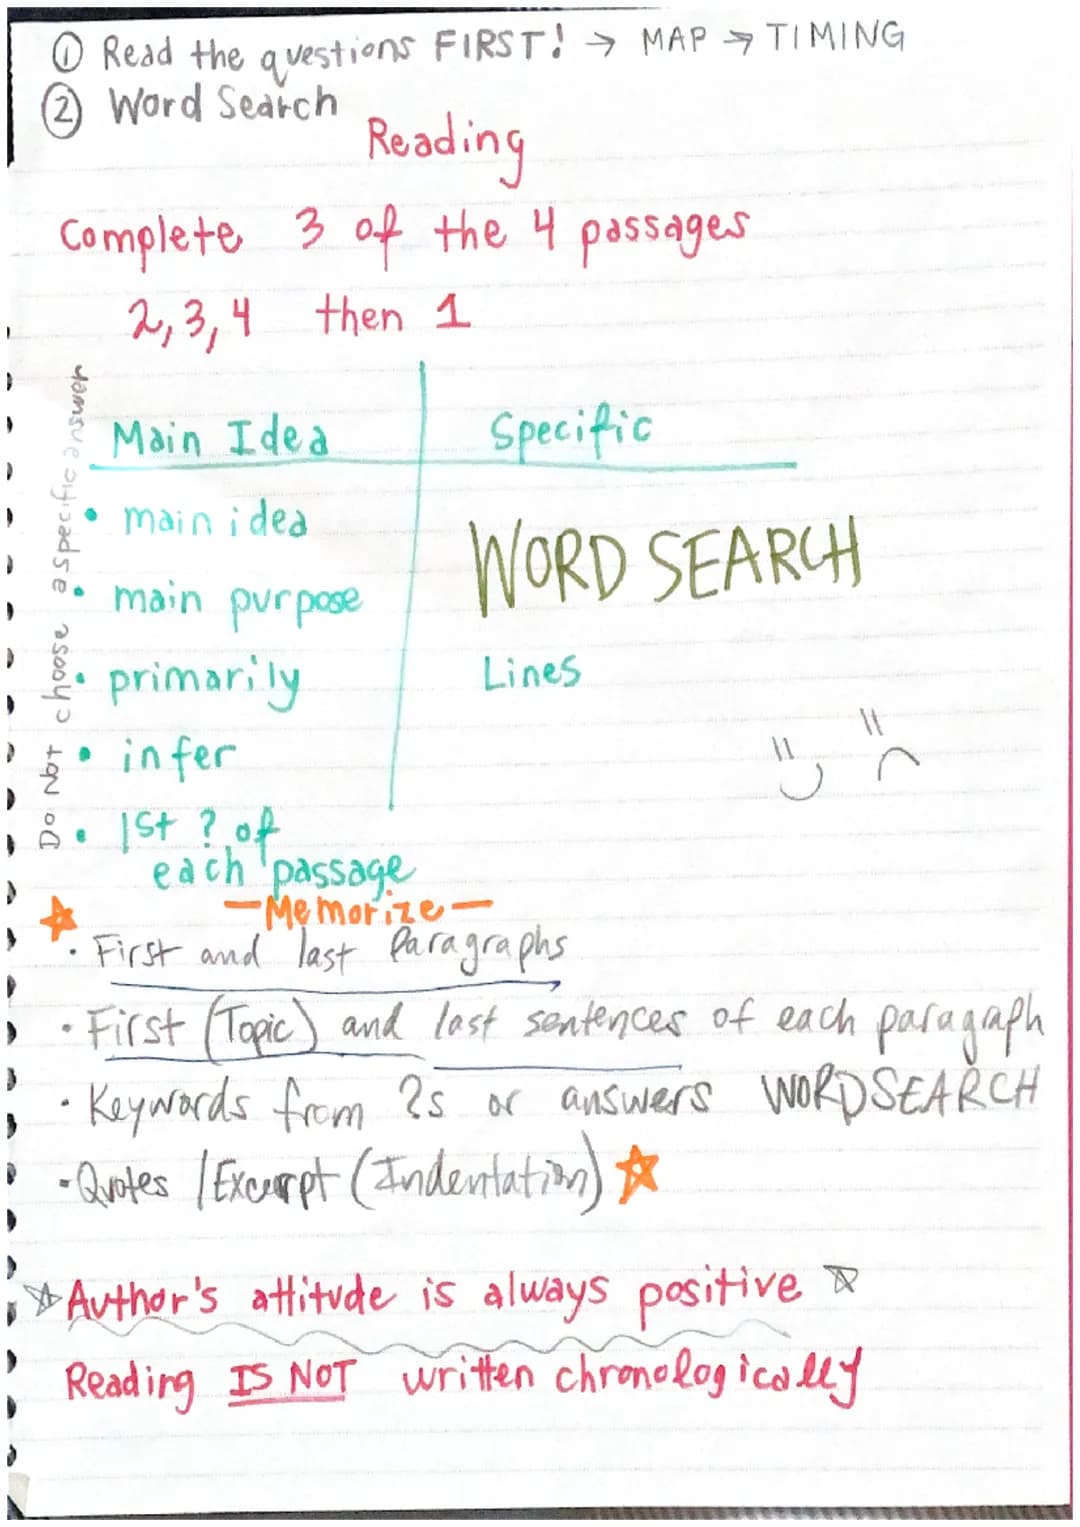 ① Read the questions FIRST! → MAP → TIMING
② Word Search
Reading
Complete 3 of the 4 passages
2,3,4 then 1
Do Not choose a specific answer
Main Idea
• main idea
• main purpose
• primarily
• infer
• 1st ? of
each passage
Specific
WORD SEARCH
Lines
— Memorize —
• First and last Paragraphs
• First (Topic) and last sentences of each paragraph
• Keywords from ?s or answers WORDSEARCH
• Quotes / Excerpt (Indentation) ☆
☆ Author's attitude is always positive ☆
Reading IS NOT written chronologically